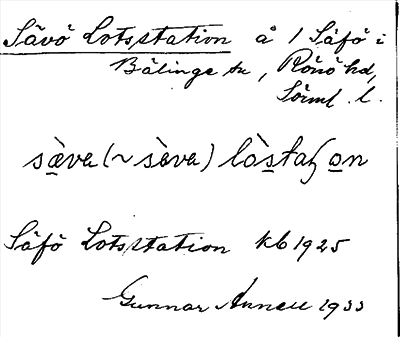 Sävö Lotsstation å 1 Säfö i
Bälinge sn, Rönö hd,
Sörml. l.
sä̀va (~ sàva) lò̀staɧon
Säfö Lotsstation kb 1925
Gunnar Annell 1933